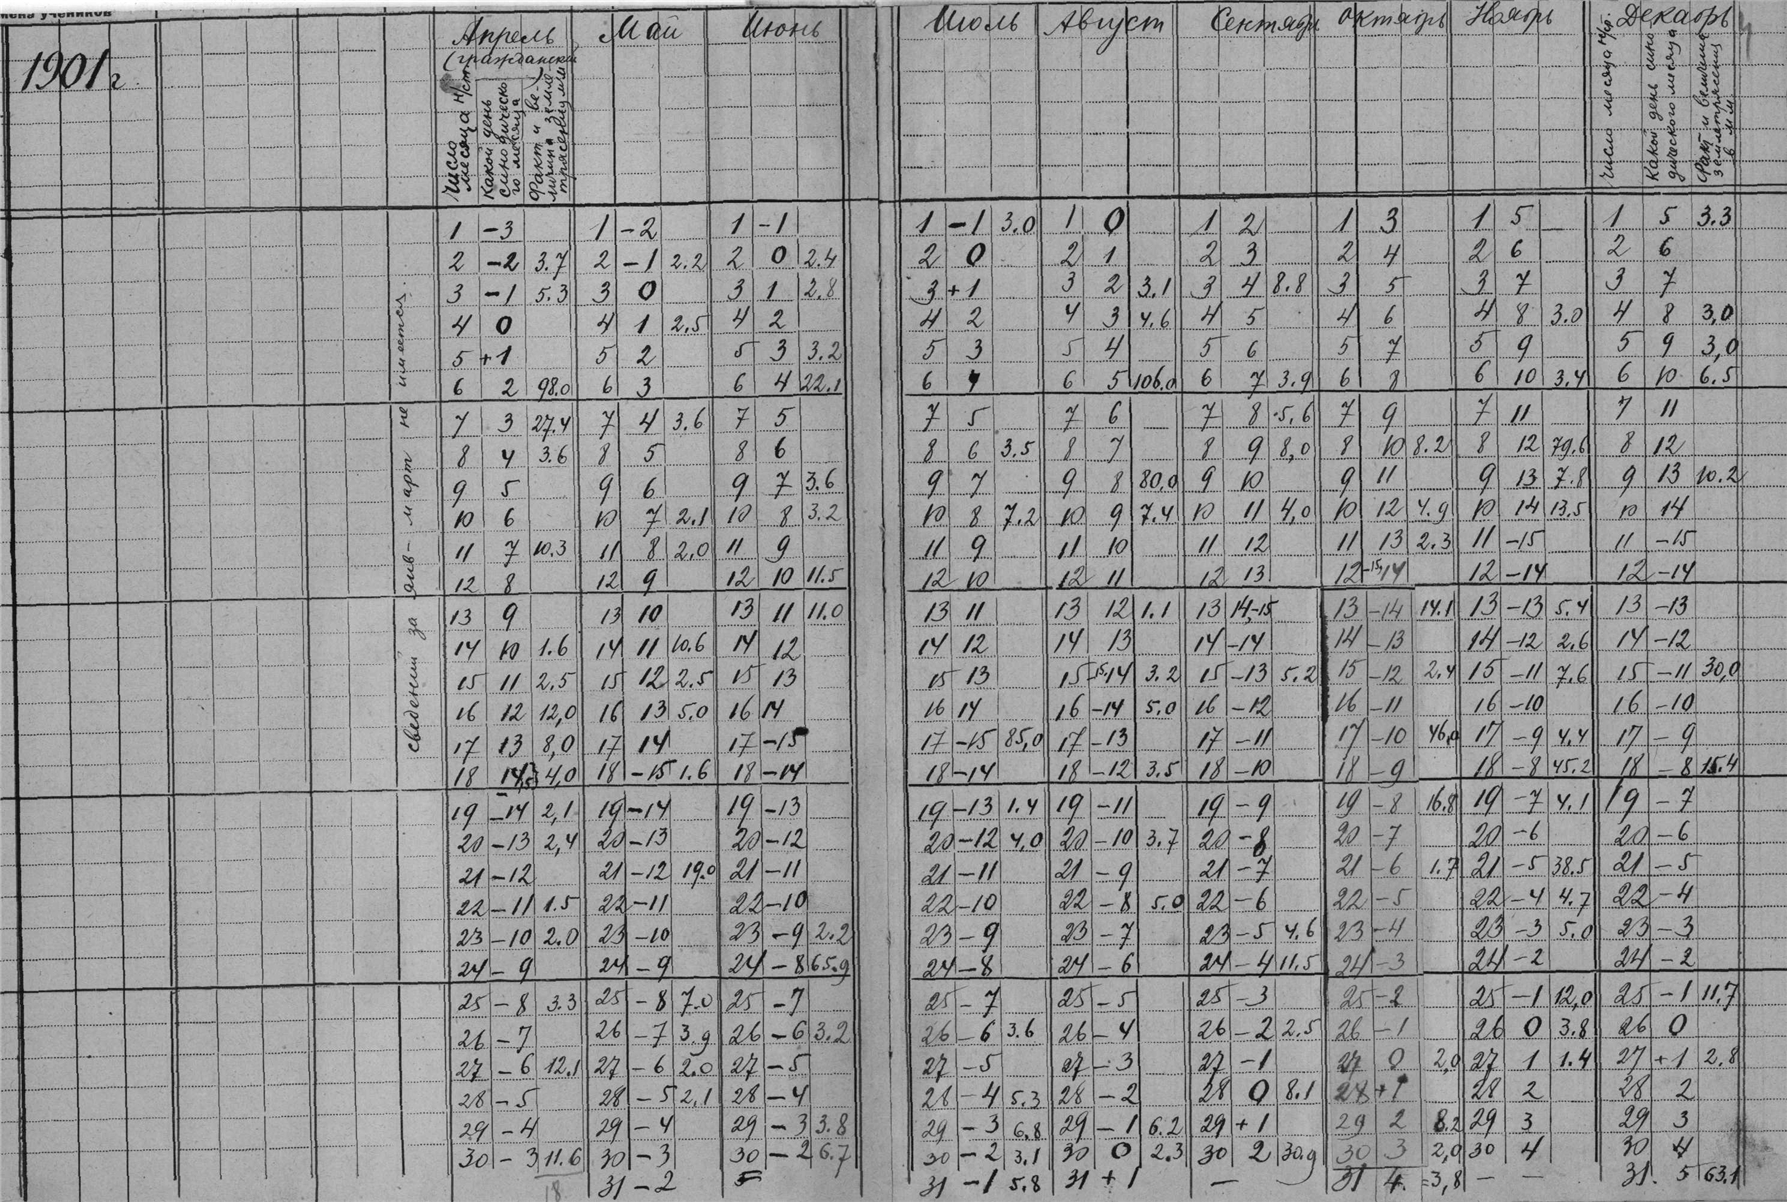 мена учеников
1901 г
Апрель Май Июнь Июль Август Сентябрь Октябрь Ноябрь Декабрь
(гражданский)
Число месяца н/ст
Какой день синодического месяца
Факт и величина землетрясения мм
Число месяца н/ст.
Какой день синодического месяца
Факт и величина землетрясения в мм
сведений за янв – март не имеется.
1 -3 1 -2 1 -1 1 -1 3.0 1 0 1 2 1 3 1 5 — 1 5 3.3
2 -2 3.7 2 -1 2.2 2 0 2.4 2 0 2 1 2 3 2 4 2 6 2 6
3 -1 5.3 3 0 3 1 2.8 3 +1 3 2 3.1 3 4 8.8 3 5 3 7 3 7
4 0 4 1 2.5 4 2 4 2 4 3 4.6 4 5 4 6 4 8 3.0 4 8 3,0
5 +1 5 2 5 3 3.2 5 3 5 4 5 6 5 7 5 9 5 9 3,0
6 2 98.0 6 3 6 4 22.1 6 4 6 5 106.0 6 7 3.9 6 8 6 10 3.4 6 10 6.5
7 3 27.4 7 4 3.6 7 5 7 5 7 6 7 8 5,6 7 9 7 11 7 11
8 4 3.6 8 5 8 6 8 6 3.5 8 7 8 9 8,0 8 10 8.2 8 12 79.6 8 12
9 5 9 6 9 7 3.6 9 7 9 8 80,0 9 10 9 11 9 13 7.8 9 13 10.2
10 6 10 7 2.1 10 8 3.2 10 8 7.2 10 9 7.4 10 11 4,0 10 12 4.9 10 14 13.5 10 14
11 7 10.3 11 8 2.0 11 9 11 9 11 10 11 12 11 13 2.3 11 -15 11 -15
12 8 12 9 12 10 11.5 12 10 12 11 12 13 12 -15,14 12 -14 12 -14
13 9 13 10 13 11 11.0 13 11 13 12 1.1 13 14,-15 13 -14 14.1 13 -13 5.4 13 -13
14 10 1.6 14 11 10.6 14 12 14 12 14 13 14 -14 14 -13 14 -12 2.6 14 -12
15 11 2.5 15 12 2.5 15 13 15 13 15 -15,14 3.2 15 -13 5.2 15 -12 2.4 15 -11 7.6 15 -11 30,0
16 12 12,0 16 13 5.0 16 14 16 14 16 -14 5.0 16 -12 16 -11 16 -10 16 -10
17 13 8,0 17 14 17 -15 17 -15 85,0 17 -13 17 -11 17 -10 46,0 17 -9 4.4 17 -9
18 14, 4,0 18 -15 1.6 18 -14 18 -14 18 -12 3.5 18 -10 18 -9 18 -8 45.2 18 -8 15.4
19 -14 2,1 19 -14 19 -13 19 -13 1.4 19 -11 19 -9 19 -8 16.8 19 -7 4.1 19 -7
20 -13 2,4 20 -13 20 -12 20 -12 4,0 20 -10 3.7 20 -8 20 -7 20 -6 20 -6
21 -12 21 -12 19.0 21 -11 21 -11 21 -9 21 -7 21 -6 1.7 21 -5 38.5 21 -5
22 -11 1.5 22 -11 22 -10 22 -10 22 -8 5.0 22 -6 22 -5 22 -4 4.7 22 -4
23 -10 2.0 23 -10 23 -9 2.2 23 -9 23 -7 23 -5 4.6 23 -4 23 -3 5.0 23 -3
24 -9 24 -9 24 -8 65.9 24 -8 24 -6 24 -4 11.5 24 -3 24 -2 24 -2
25 -8 3.3 25 -8 7.0 25 -7 25 -7 25 -5 25 -3 25 -2 25 -1 12,0 25 -1 11.7
26 -7 26 -7 3.9 26 -6 3.2 26 -6 3.6 26 -4 26 -2 2.5 26 -1 26 0 3.8 26 0
27 -6 12.1 27 -6 2.0 27 -5 27 -5 27 -3 27 -1 27 0 2,0 27 1 1.4 27 +1 2.8
28 -5 28 -5 2.1 28 -4 28 -4 5.3 28 -2 28 0 8.1 28 +1 28 2 28 2
29 -4 29 -4 29 -3 3.8 29 -3 6.8 29 -1 6.2 29 +1 29 2 8.2 29 3 29 3
30 -3 11.6 30 -3 30 -2 6.7 30 -2 3.1 30 0 2.3 30 2 30.9 30 3 2,0 30 4 30 4
18 31 -2 31 -1 5.8 31 +1 — 31 4 3,8 — — 31 5 63.1